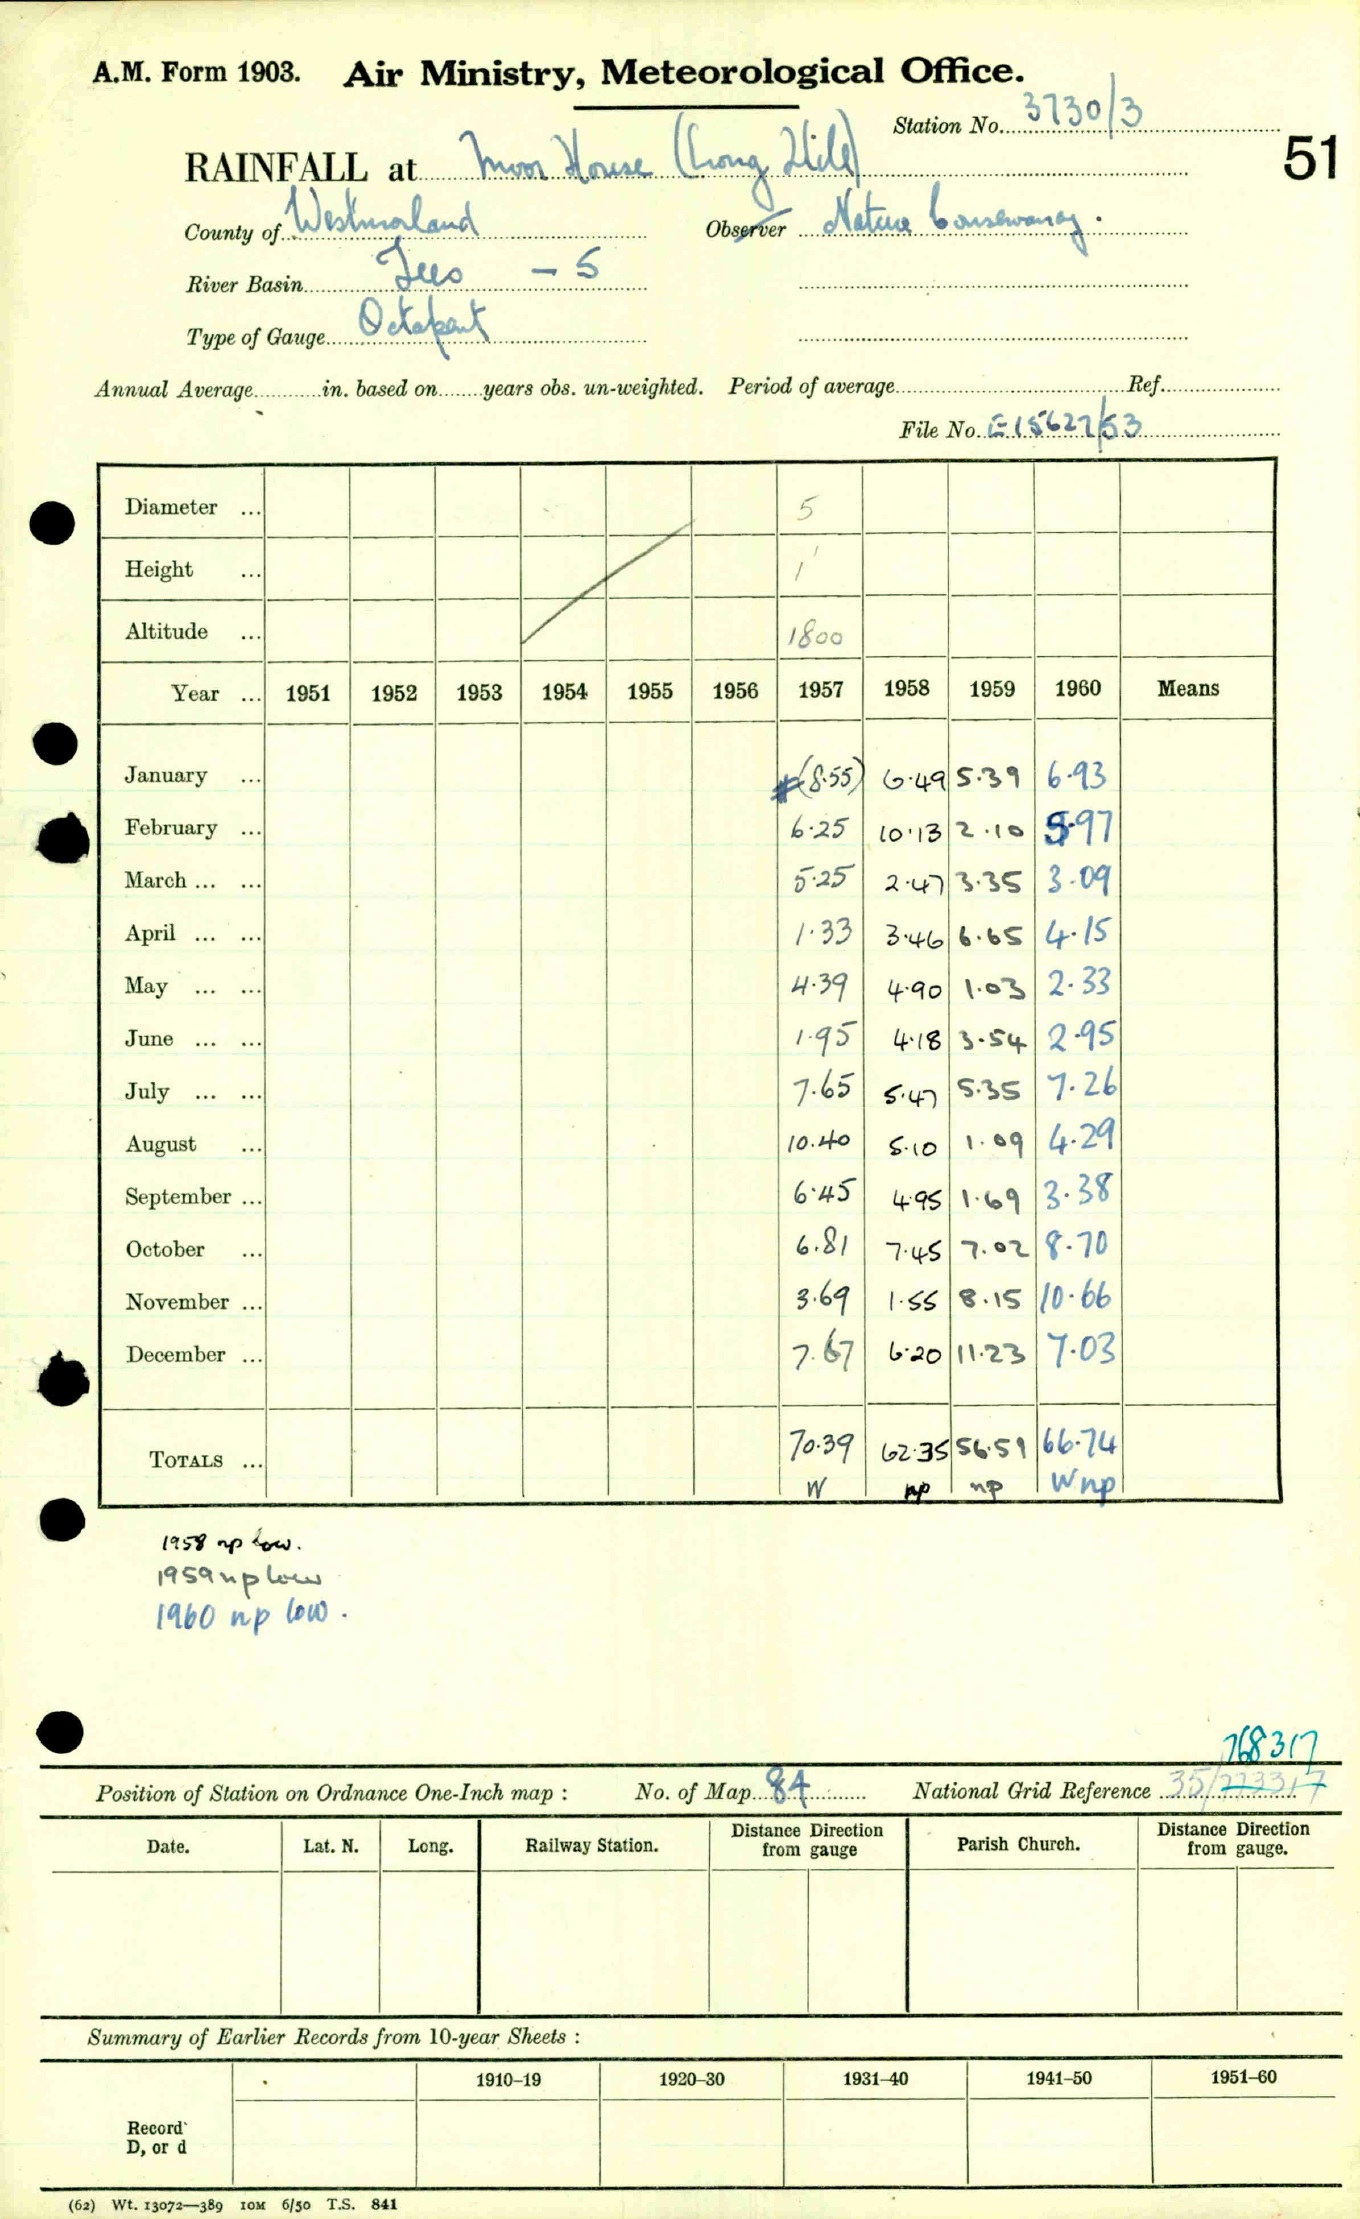 A.M. Form 1903. Air Ministry, Meteorological Office.
Station No. 3730/3
51
RAINFALL at Moor House (Long Hill)
County of Westmorland Observer Nature Conservancy.
River Basin Tees - 5
Type of Gauge Octapent
Annual Average in. based on years obs. un-weighted. Period of average Ref.
File No. E15627/53
Diameter ... 5
Height ... 1'
Altitude ... 1800
Year ... 1951 1952 1953 1954 1955 1956 1957 1958 1959 1960 Means
January ... (8.55) 6.49 5.39 6.93
February ... 6.25 10.13 2.10 5.97
March ... ... 5.25 2.47 3.35 3.09
April ... ... 1.33 3.46 6.65 4.15
May ... ... 4.39 4.90 1.03 2.33
June ... ... 1.95 4.18 3.54 2.95
July ... ... 7.65 5.47 5.35 7.26
August ... 10.40 5.10 1.09 4.29
September ... 6.45 4.95 1.69 3.38
October ... 6.81 7.45 7.02 8.70
November ... 3.69 1.55 8.15 10.66
December ... 7.67 6.20 11.23 7.03
TOTALS ... 70.39 62.35 56.59 66.74
W np np W np
1958 np low.
1959 np low
1960 np low.
768317
Position of Station on Ordnance One-Inch map : No. of Map 84 National Grid Reference 35/773317
Date. Lat. N. Long. Railway Station. Distance Direction from gauge Parish Church. Distance Direction from gauge.
Summary of Earlier Records from 10-year Sheets :
1910–19 1920–30 1931–40 1941–50 1951–60
Record
D, or d
(62) Wt. 13072—389 10M 6/50 T.S. 841